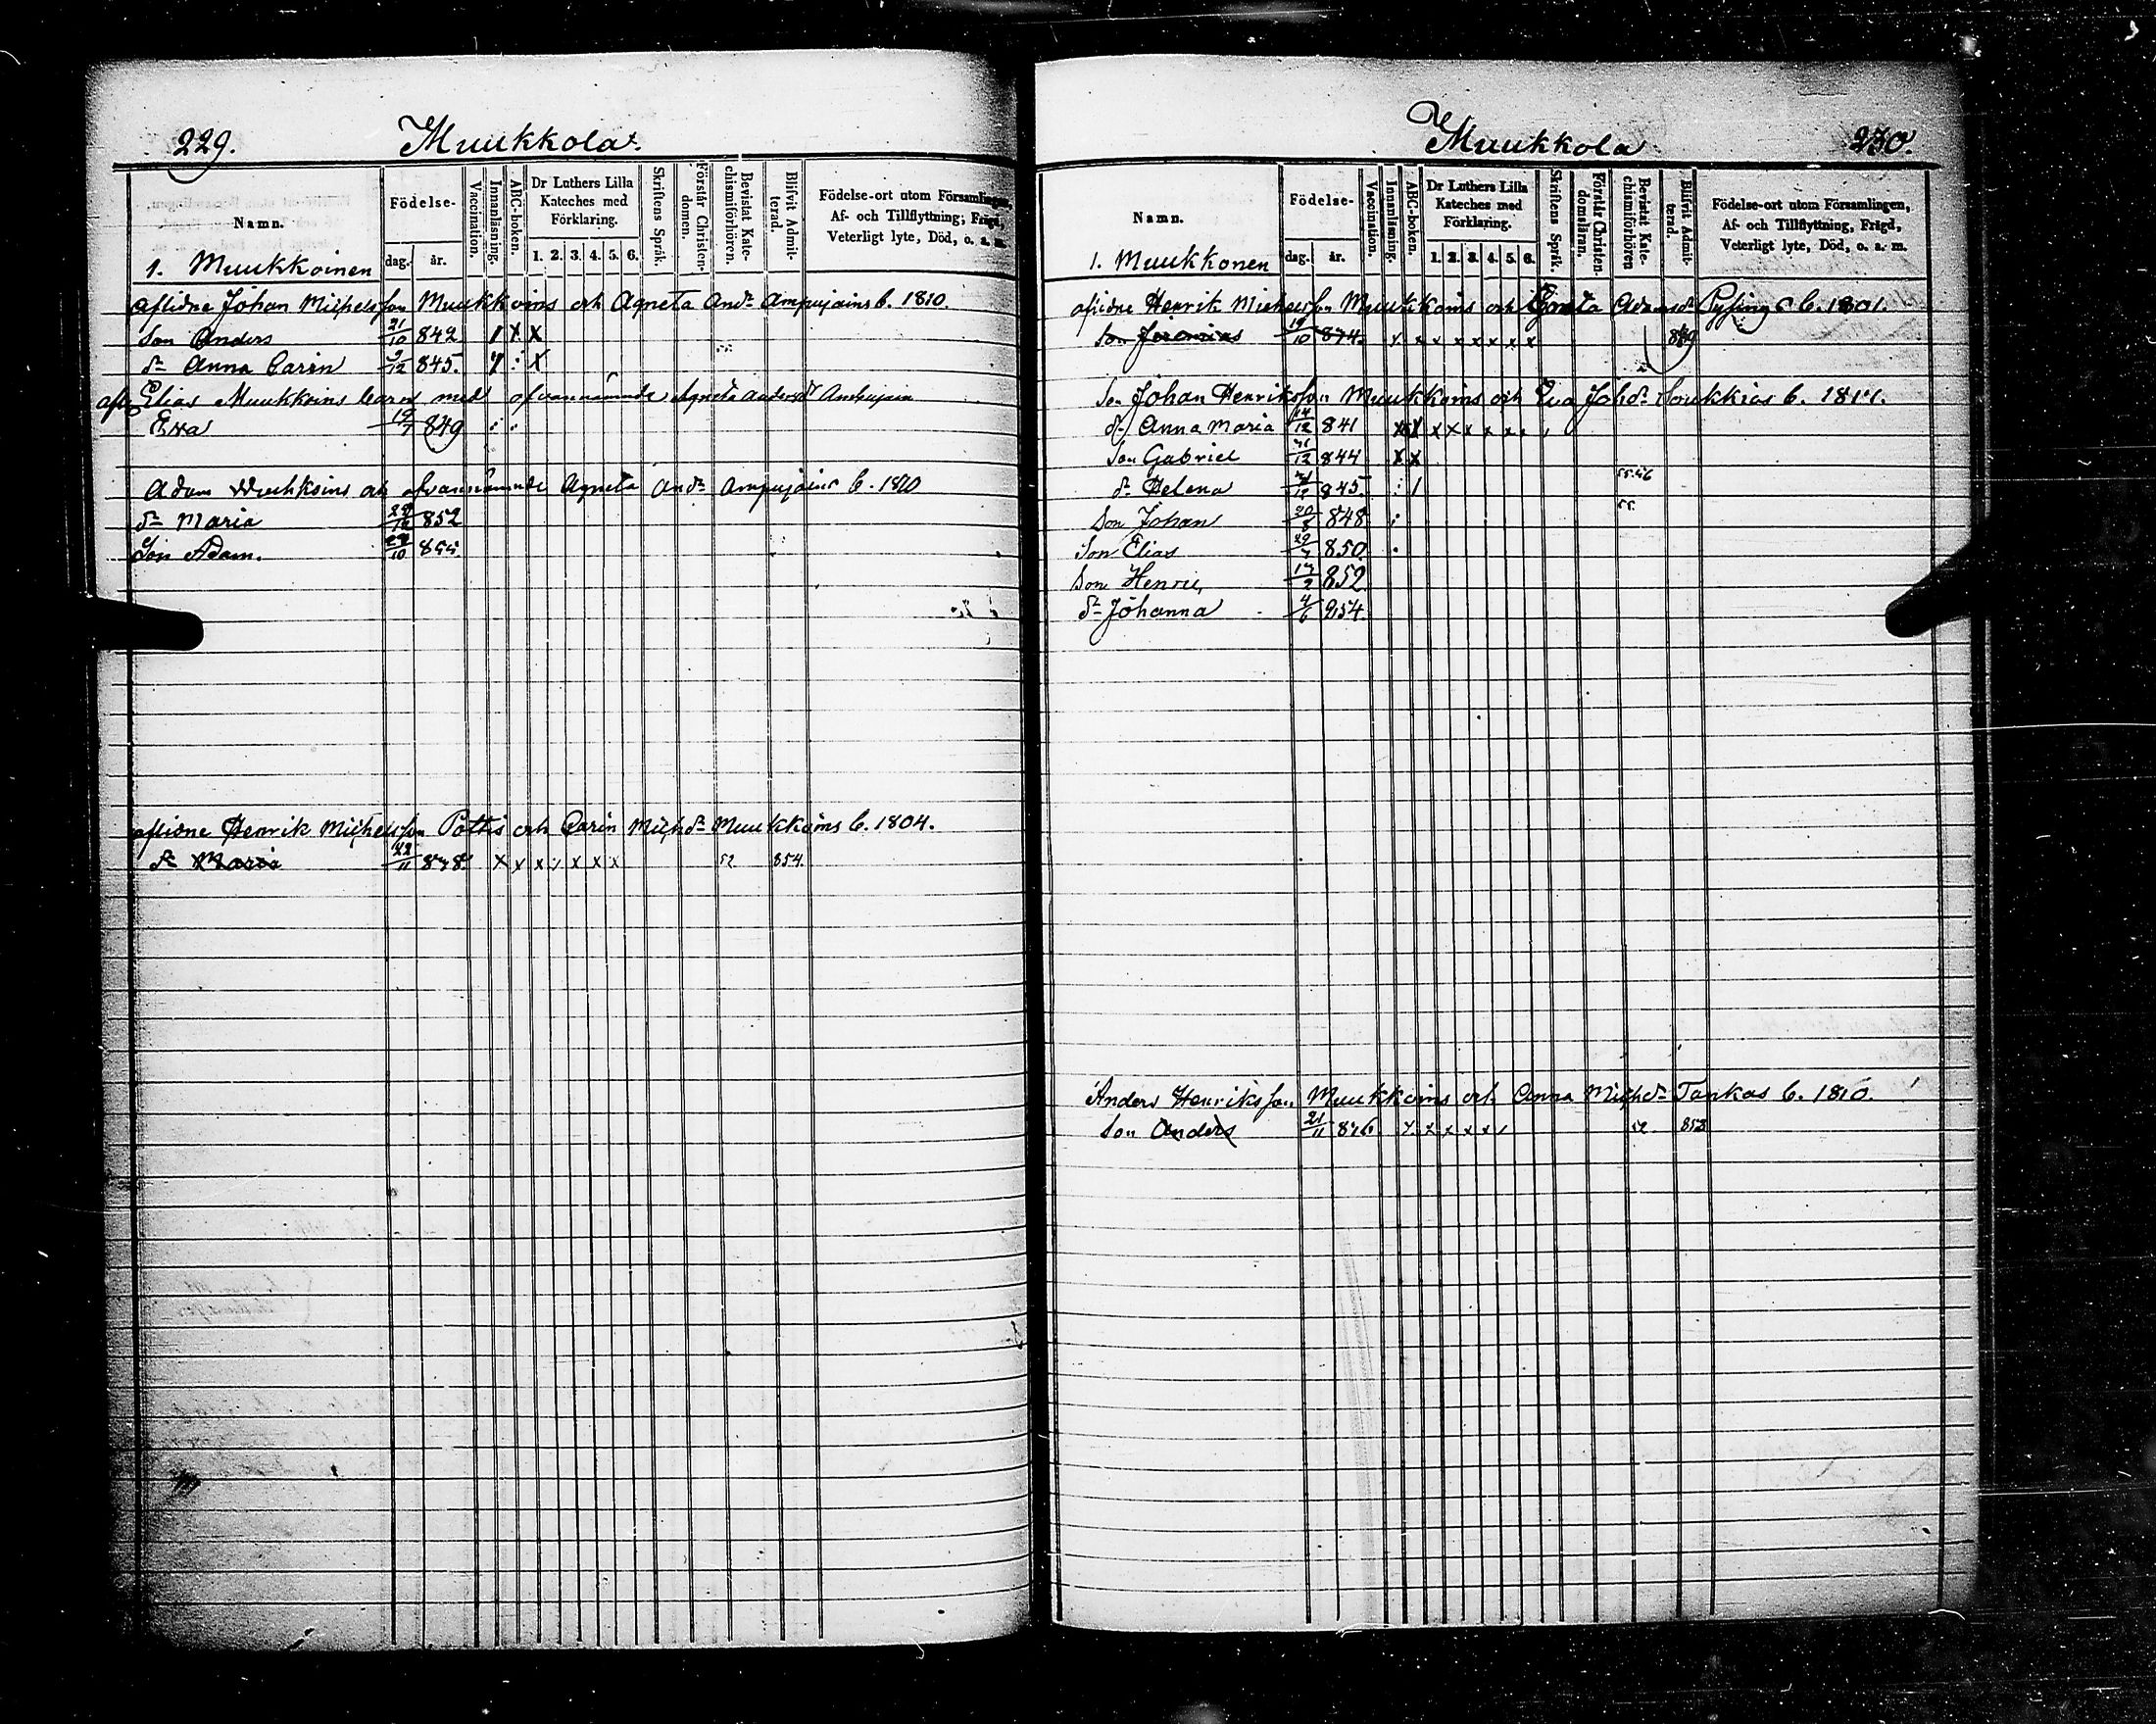 229.
Muukkola.
Namn.
Födelse-
dag.
år.
Vaccination.
Innanläsning.
ABC-boken.
Dr Luthers Lilla
Kateches med
Förklaring.
1. 2. 3. 4. 5. 6.
Skriftens Språk.
Förstår Christen-
domen.
Bevistat Kate-
chismiförhören.
Blifvit Admit-
terad.
Födelse-ort utom Församlingen,
Af- och Tillflyttning, Frägd,
Veterligt lyte, Död, o. s. m.
1. Muukkoinen
aflidne Johan Michelsson Muukkoins och Agneta Andr Ampujains b. 1810.
Son Anders 21/10 842 X X
dr Anna Carin 9/12 845. X 55
Elias Muukkoins barn med ofvannämnde Agneta Andersdr Ampujain
Ewa 19/7 849
Adam Muukkoins och ofvannämnde Agneta Andr Ampujains b. 1810
dr Maria 852
Son Adam. 855.
aflidne Henrik Michelsson Pottis och Carin Michdr Muukkoins b. 1804.
dr Maria 22/11 838. x x x x x x x 52 854.
Muukkola
230.
Namn.
Födelse-
dag.
år.
Vaccination.
Innanläsning.
ABC-boken.
Dr Luthers Lilla
Kateches med
Förklaring.
1. 2. 3. 4. 5. 6.
Skriftens Språk.
Förstår Christen-
domsläran.
Bevistat Kate-
chismiförhören
Blifvit Admit-
terad.
Födelse-ort utom Församlingen,
Af- och Tillflyttning, Frägd,
Veterligt lyte, Död, o. s. m.
1. Muukkonen
aflidne Henrik Michelsson Muukkoins och Adamsdr b. 1801.
Son Jeremias 19/10 834. x x x x x x x x 849
Son Johan Henriksson Muukkoins och Eva Johdr b. 1811.
dr Anna Maria 14/12 841 x x x x x x
Son Gabriel 844 X X
dr Helena 845. 55.56
Son Johan 848 55.
Son Elias 29/7 850
Son Henric 852
dr Johanna 4/6 854.
Anders Henriksson Muukkoins och Anna Michdr Tankas b. 1810.
Son Anders 21/11 836 x x x x x 52 853